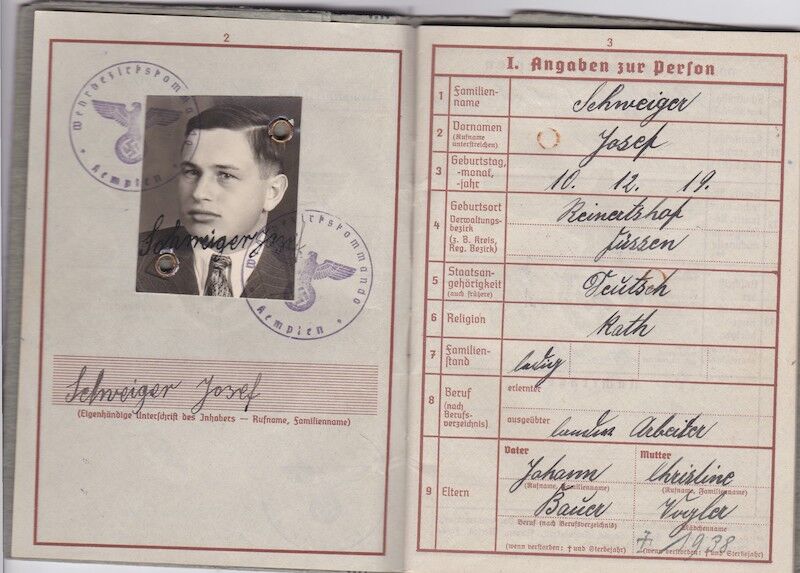 2
Wehrbezirkskommando
Kempten
Schweiger Josef
Wehrbezirkskommando
Kempten
Schweiger Josef
(Eigenhändige Unterschrift des Inhabers — Rufname, Familienname)
3
I. Angaben zur Person
1 Familien-
name
Schweiger
2 Vornamen
(Rufname
unterstreichen)
Josef
3 Geburtstag,
-monat,
-jahr
10. 12. 19.
4 Geburtsort
Verwaltungs-
bezirk
(z. B. Kreis,
Reg. Bezirk)
Füssen
5 Staatsan-
gehörigkeit
(auch frühere)
Deutsch
6 Religion
Kath
7 Familien-
stand
ledig
8 Beruf
(nach
Berufs-
verzeichnis)
erlernter
ausgeübter
Arbeiter
9 Eltern
Vater
Johann
(Rufname, Familienname)
Bauer
Beruf (nach Berufsverzeichnis)
(wenn verstorben: † und Sterbejahr)
Mutter
Christine
(Rufname, Familienname)
Vogler
Mädchenname
† 1938
(wenn verstorben: † und Sterbejahr)